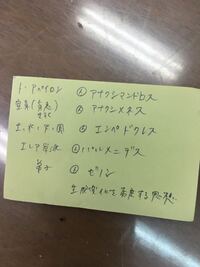 ト・アペイロン ① アナクシマンドロス
空気(気息) ② アナクシメネス
土、水、ア、風 ③ エンペドクレス
エレア学派 ④ パルメニデス
弟子 ⑤ ゼノン
生成変化を否定する思想.